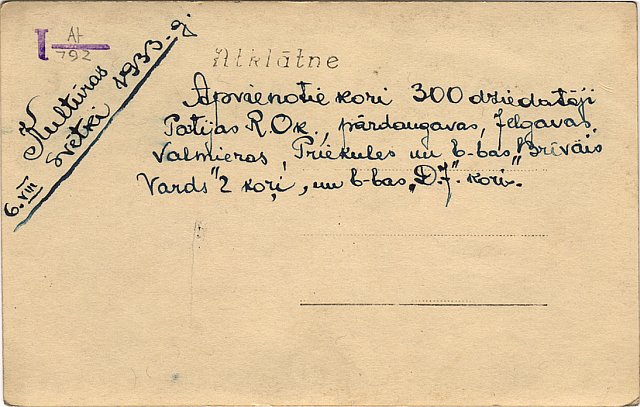 I At
792
Atklātne
Kultūras
svētki 1933. g.
6. VIII
Apvienotie kori 300 dziedatāji
Patijas R.Ok., pārdaugavas, Jelgavas
Valmieras, Priekules un b-bas „Brīvais
Vards" 2 koŗi, un b-bas „D.J." kori.